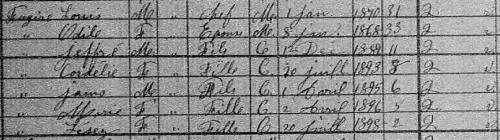 Fugère Louis M " Chef M. 1 Jan. 1870 31 2
" Odile F " Epouse M. 8 Jan. 1868 33 2
" M " Fils C. 12 Dec 1889 11 2
" Cordelie F " Fille C. 20 juill 1893 8 2
" James M " Fils C. 1 Avril 1895 6 2
" Marie F " Fille C. 2 Avril 1896 5 2
" F " Fille C. 20 juill 1898 2 2